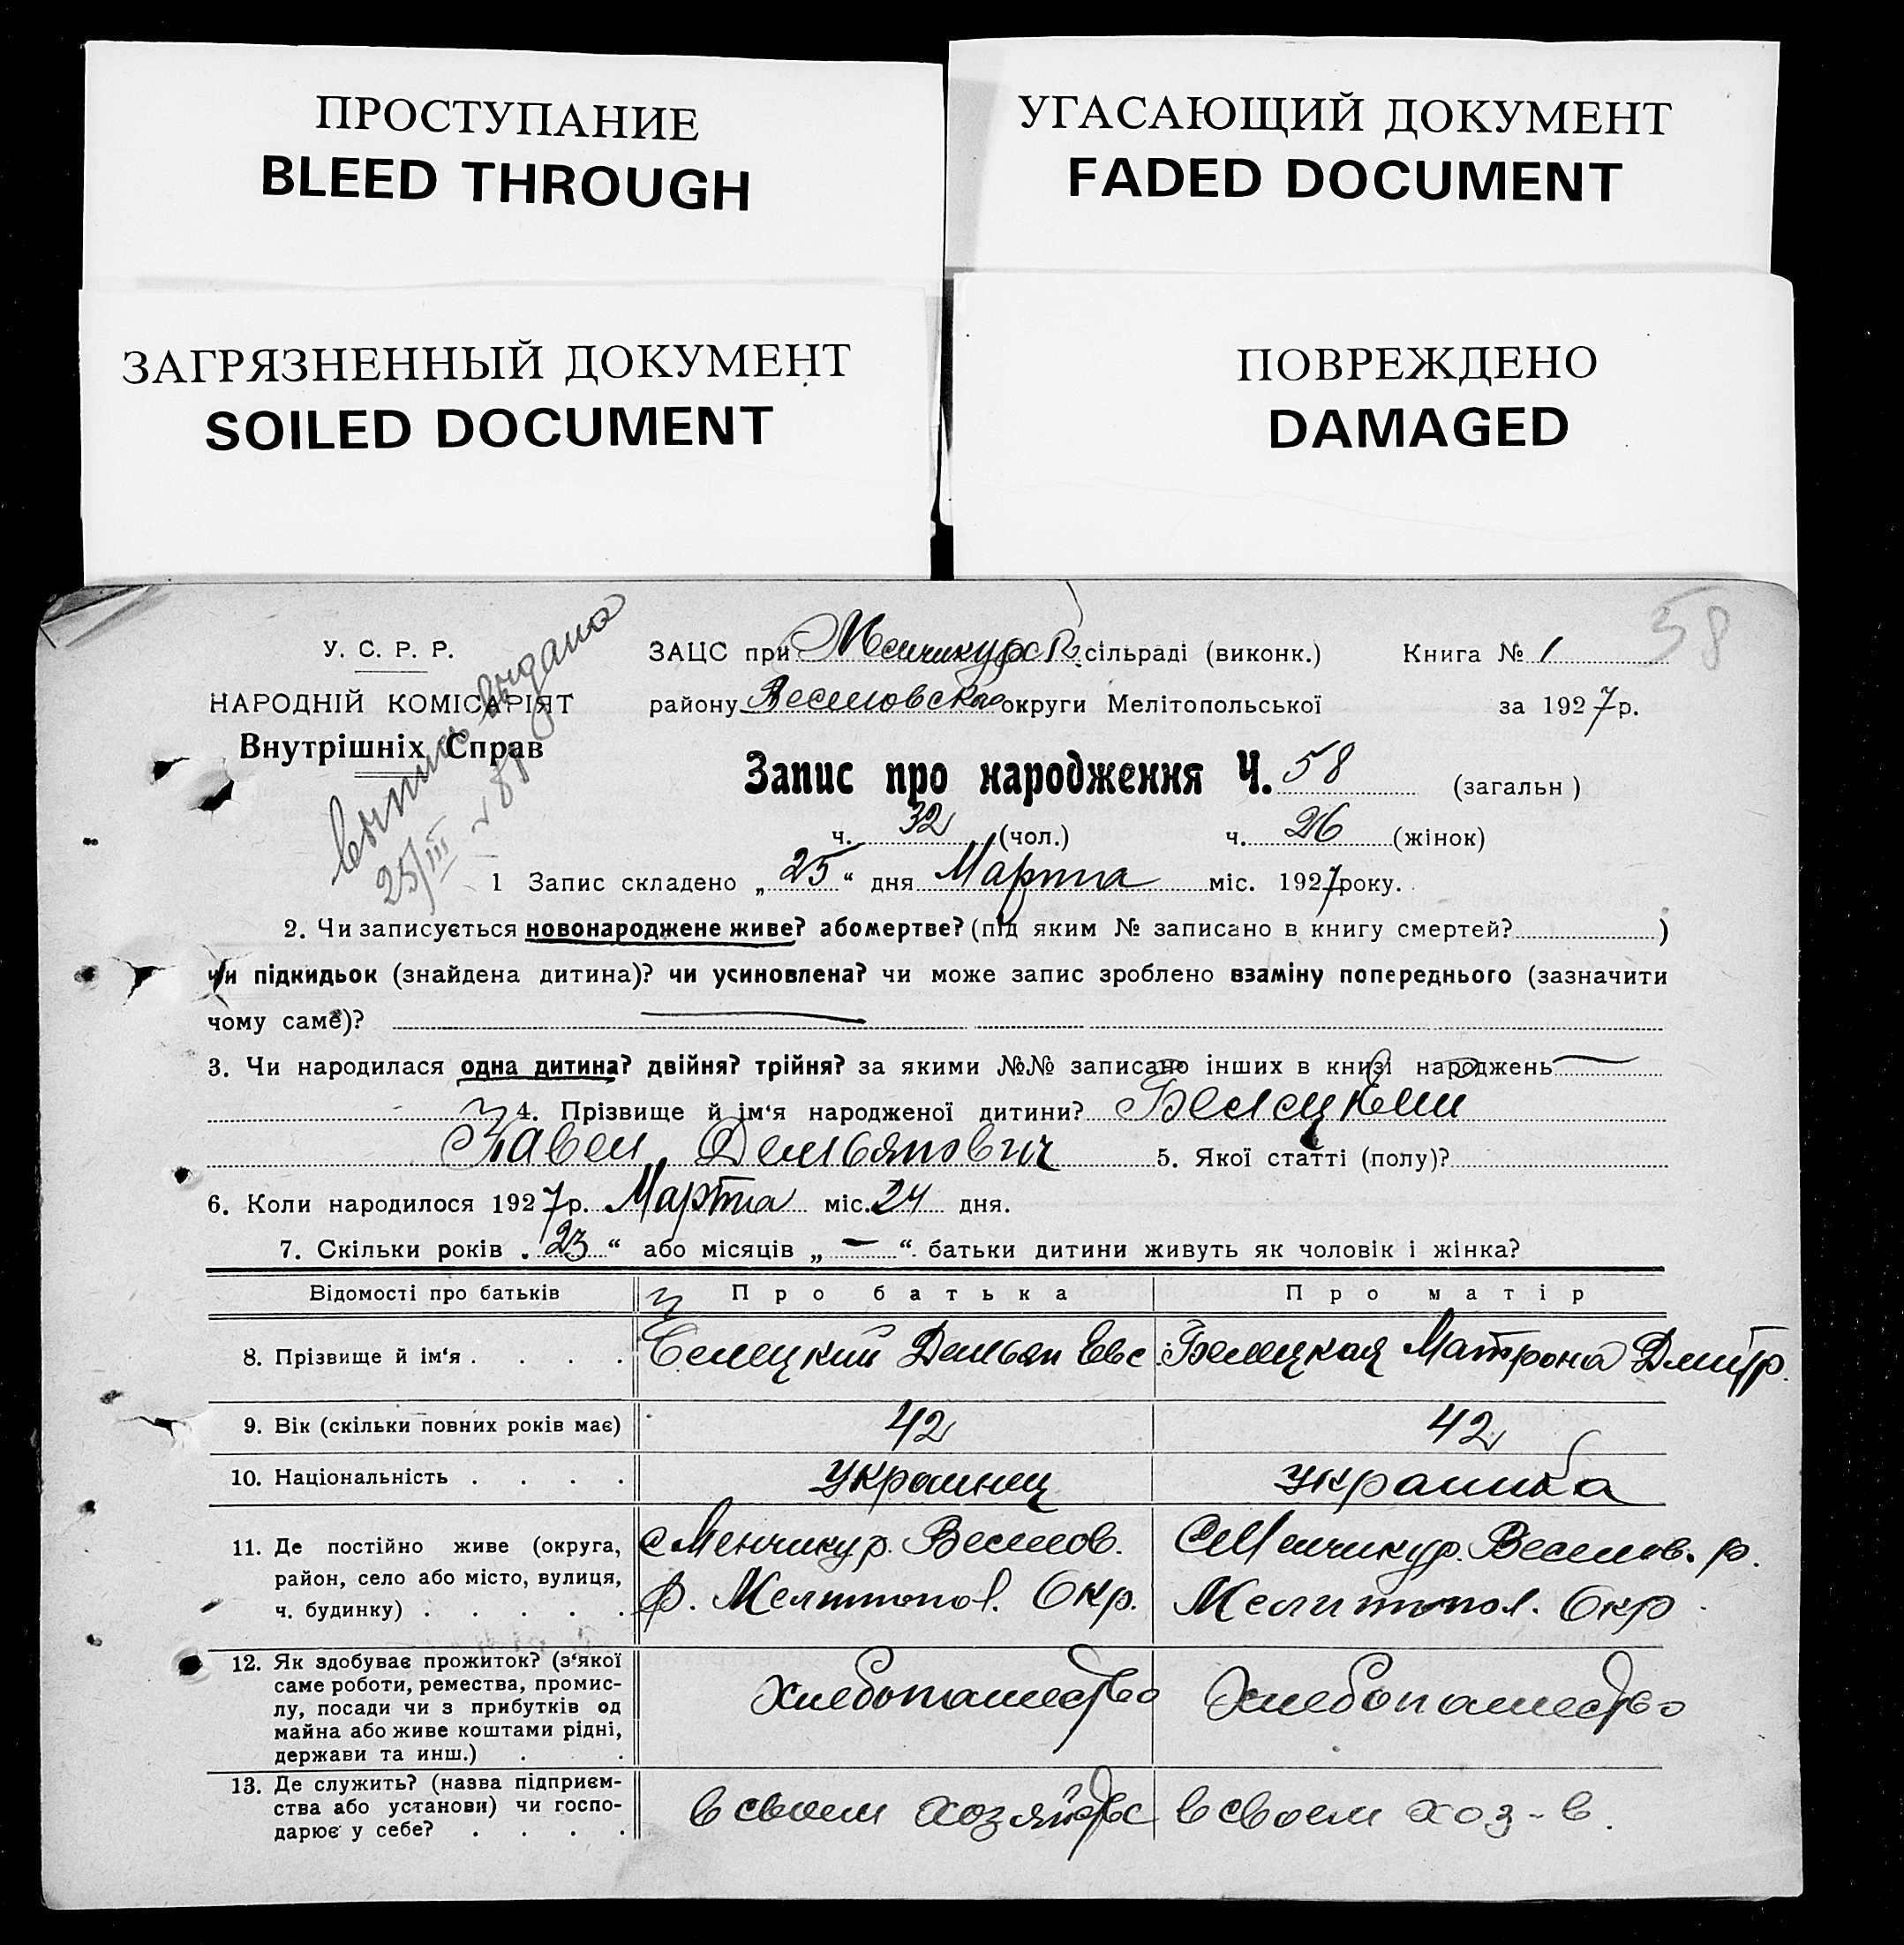 ПРОСТУПАНИЕ
BLEED THROUGH
УГАСАЮЩИЙ ДОКУМЕНТ
FADED DOCUMENT
ЗАГРЯЗНЕННЫЙ ДОКУМЕНТ
SOILED DOCUMENT
ПОВРЕЖДЕНО
DAMAGED
58
У. С. Р. Р.
НАРОДНІЙ КОМІСАРІЯТ
Внутрішніх Справ
выпись выдана
25/III
ЗАЦС при Менчикурск. сільраді (виконк.) Книга № 1
району Веселовско округи Мелітопольської за 1927 р.
Запис про народження Ч. 58 (загальн)
ч. 32 (чол.) ч. 26 (жінок)
1 Запис складено „ 25 “ дня Марта міс. 1927 року.
2. Чи записується новонароджене живе? або мертве? (під яким № записано в книгу смертей? )
чи підкидьок (знайдена дитина)? чи усиновлена? чи може запис зроблено взаміну попереднього (зазначити
чому саме)? —
3. Чи народилася одна дитина? двійня? трійня? за якими №№ записано інших в книзі народжень —
4. Прізвище й ім‘я народженої дитини? Белецкий
Павел Демьянович 5. Якої статті (полу)?
6. Коли народилося 1927 р. Марта міс. 24 дня.
7. Скільки років „ 23 “ або місяців „ — “ батьки дитини живуть як чоловік і жінка?
Відомості про батьків Про батька Про матір
8. Прізвище й ім‘я . . . . Белецкий Демьян Евс Белецкая Матрона Дмитр.
9. Вік (скільки повних років має) 42 42
10. Національність . . . . Украинец Украинка
11. Де постійно живе (округа,
район, село або місто, вулиця,
ч. будинку) . . . . .
с Менчикур. Веселов.
р. Мелитопол. Окр.
с Менчикур. Веселов. р.
Мелитопол. Окр
12. Як здобуває прожиток? (з‘якої
саме роботи, ремества, промис-
лу, посади чи з прибутків од
майна або живе коштами рідні,
держави та инш.) . .
Хлебопашество Хлебопашество
13. Де служить? (назва підприєм-
ства або установи) чи госпо-
дарює у себе? . . . .
в своем хозяйстве в своем хоз-в.